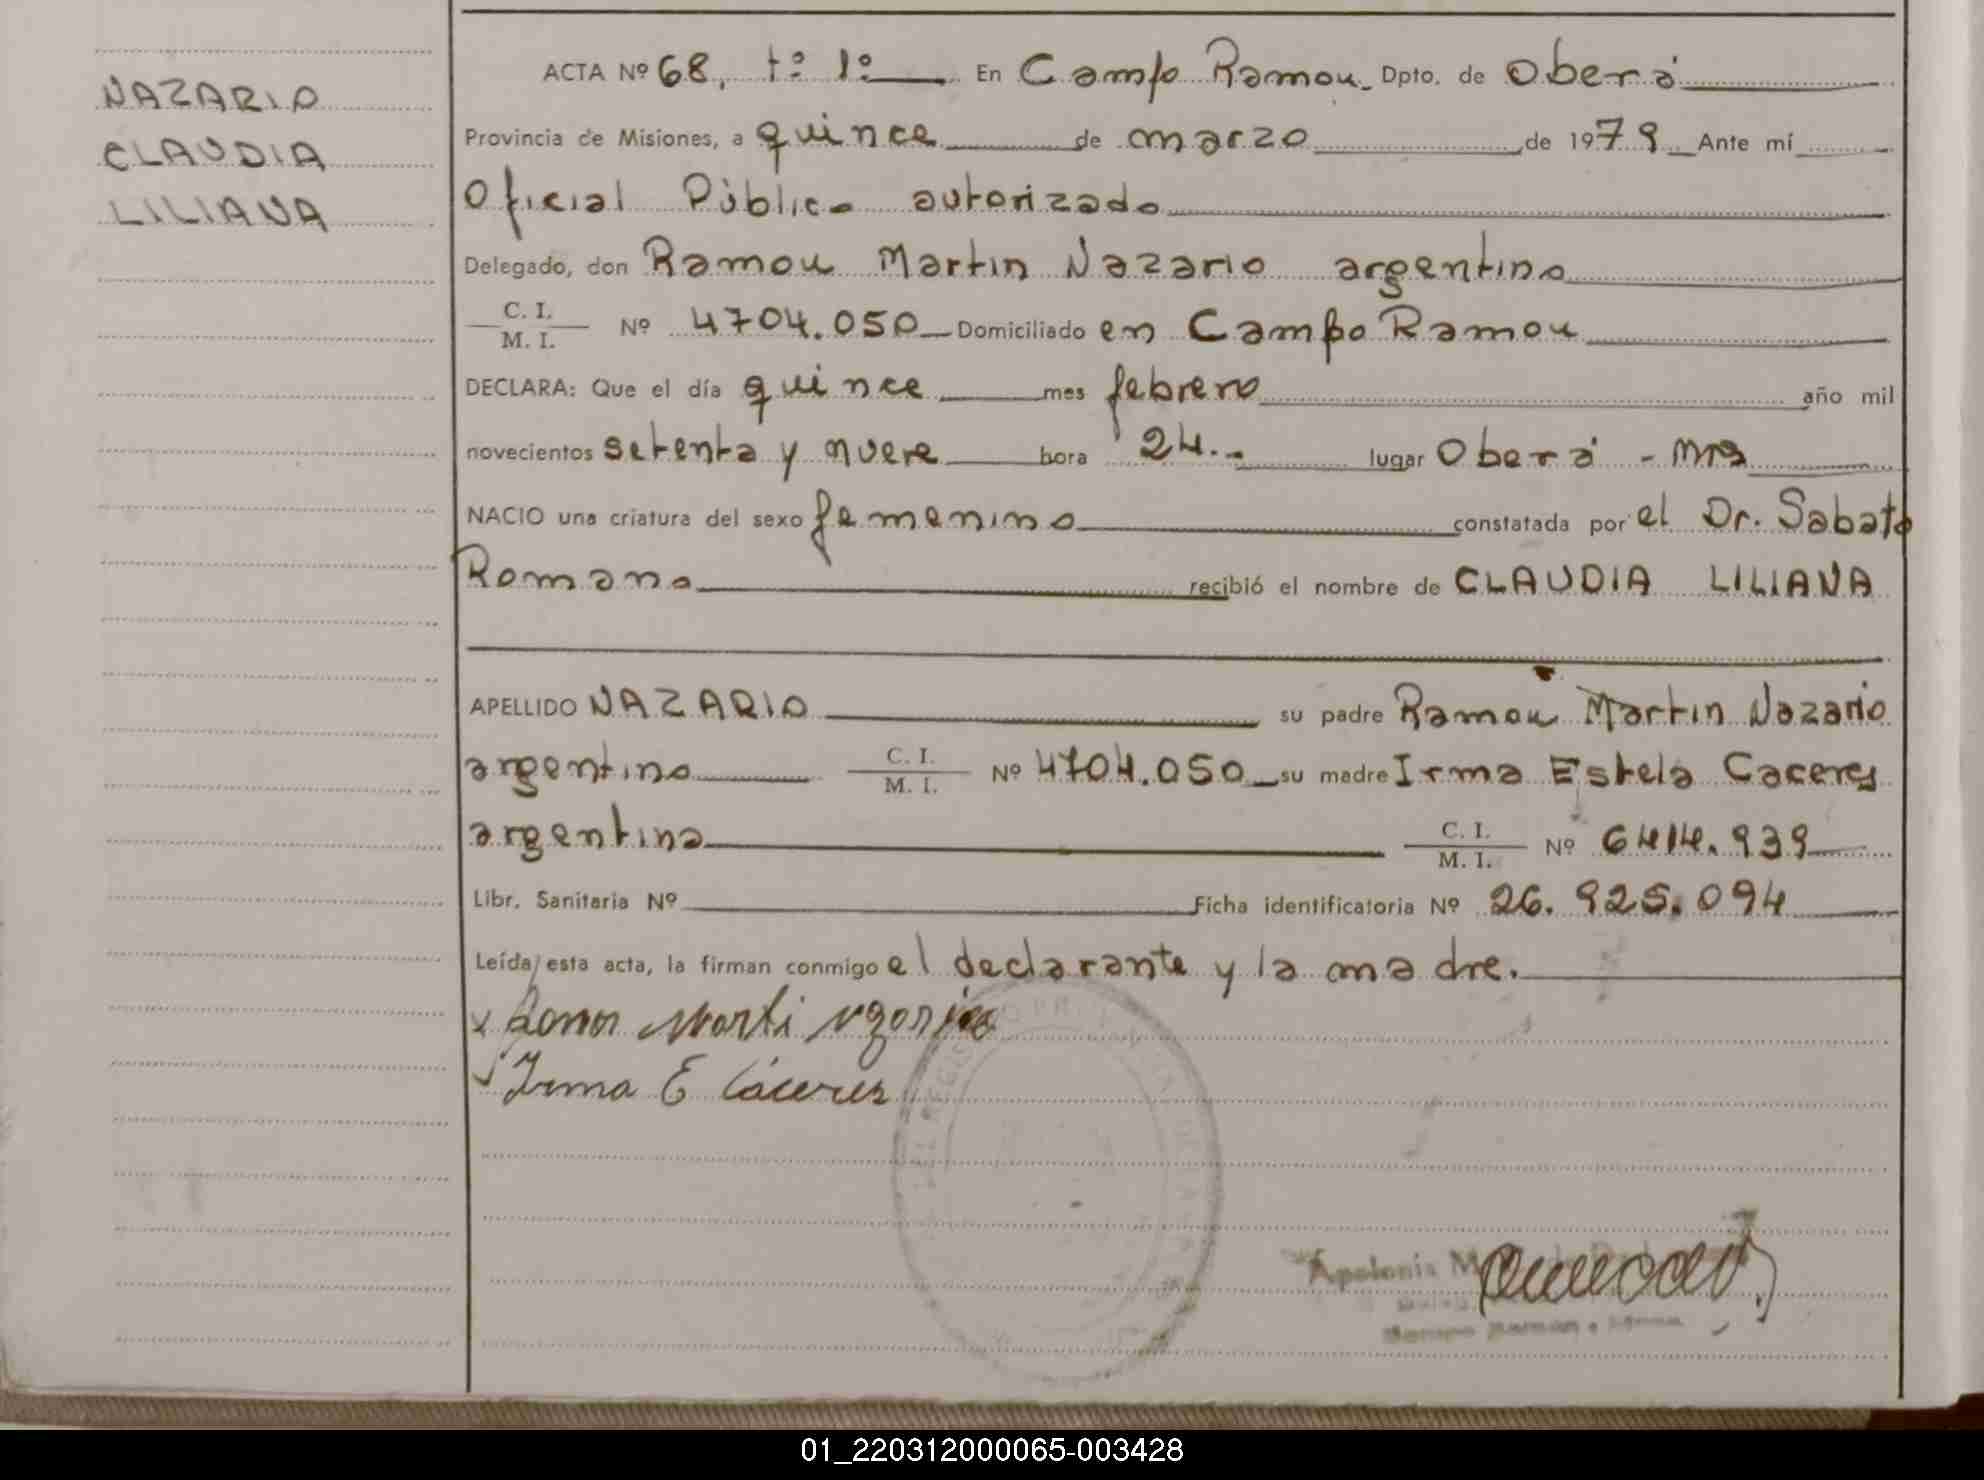 NAZARIO
CLAUDIA
LILIANA
ACTA Nº 68, tº 1º En Campo Ramon Dpto. de Oberá
Provincia de Misiones, a quince de marzo de 1979 Ante mí
Oficial Público autorizado
Delegado, don Ramon Martin Nazario argentino
C. I.
M. I. Nº 4704.050 Domiciliado en Campo Ramon
DECLARA: Que el día quince mes febrero año mil
novecientos setenta y nueve hora 24.- lugar Oberá - Mns
NACIO una criatura del sexo femenino constatada por el Dr. Sabato
Romano recibió el nombre de CLAUDIA LILIANA
APELLIDO NAZARIO su padre Ramon Martin Nazario
argentino C. I.
M. I. Nº 4704.050 su madre Irma Estela Caceres
argentina C. I.
M. I. Nº 6414.939
Libr. Sanitaria Nº Ficha identificatoria Nº 26.925.094
Leída esta acta, la firman conmigo el declarante y la madre.
Irma E Cáceres
Apolonia
01_220312000065-003428